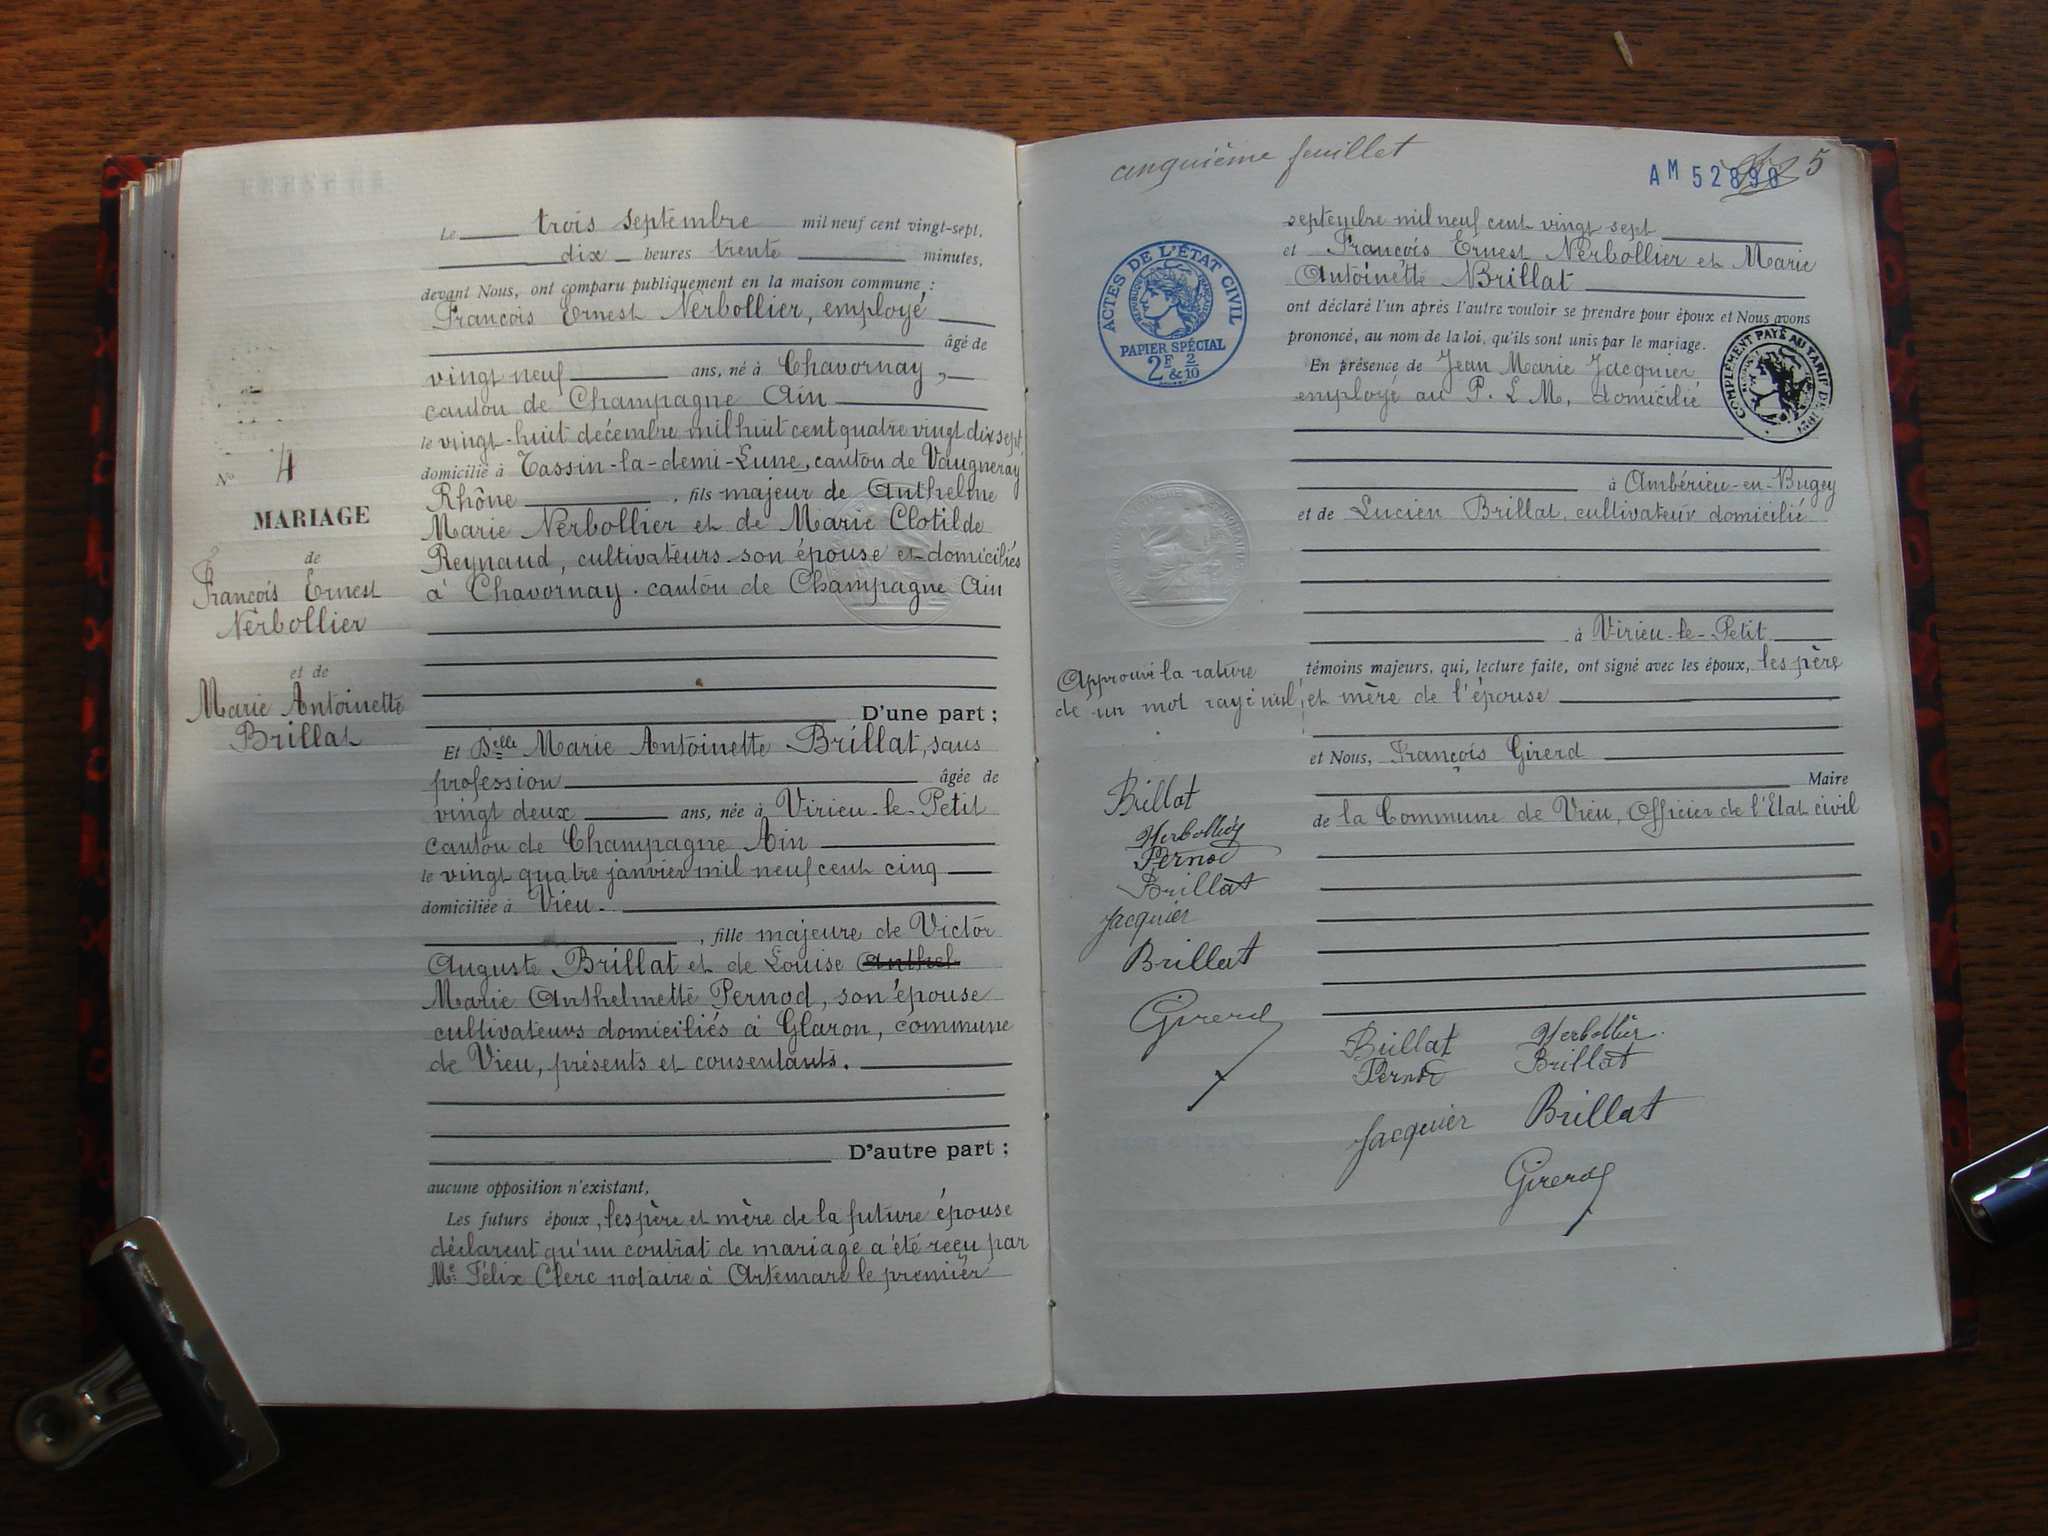 Le trois septembre mil neuf cent vingt-sept,
dix heures trente minutes,
devant Nous, ont comparu publiquement en la maison commune :
François Ernest Nerbollier, employé
âgé de
vingt neuf ans, né à Chavornay,
canton de Champagne Ain
le vingt-huit décembre mil huit cent quatre vingt dix sept
domicilié à Tassin-la-demi-Lune, canton de Vaugneray
Rhône, fils majeur de Anthelme
Marie Nerbollier et de Marie Clotilde
Reynaud, cultivateurs son épouse et domiciliés
à Chavornay. canton de Champagne Ain
D'une part ;
Et Delle Marie Antoinette Brillat, sans
profession âgée de
vingt deux ans, née à Virieu-le-Petit
canton de Champagne Ain
le vingt quatre janvier mil neuf cent cinq
domiciliée à Vieu.
, fille majeure de Victor
Auguste Brillat et de Louise Anthel
Marie Anthelmette Pernod, son épouse
cultivateurs domiciliés à Glaron, commune
de Vieu, présents et consentants.
D'autre part ;
aucune opposition n'existant,
Les futurs époux, les père et mère de la future épouse
déclarent qu'un contrat de mariage a été reçu par
Me Félix Clerc notaire à Artemare le premier
No 4
MARIAGE
de
François Ernest
Nerbollier
et de
Marie Antoinette
Brillat
cinquième feuillet
AM 52890
5
septembre mil neuf cent vingt sept
et François Ernest Nerbollier et Marie
Antoinette Brillat
ont déclaré l'un après l'autre vouloir se prendre pour époux et Nous avons
prononcé, au nom de la loi, qu'ils sont unis par le mariage.
En présence de Jean Marie Jacquier
employé au P. L M, domicilié
à Ambérieu-en-Bugey
et de Lucien Brillat, cultivateur domicilié
à Virieu-le-Petit
témoins majeurs, qui, lecture faite, ont signé avec les époux, les père
et mère de l'épouse
et Nous, François Girerd
Maire
de la Commune de Vieu, Officier de l'Etat civil
ACTES DE L'ÉTAT CIVIL
RÉPUBLIQUE FRANÇAISE
PAPIER SPÉCIAL
2F & 2/10
COMPLÉMENT PAYÉ AU TARIF
Approuvé la rature
de un mot rayé nul
Brillat
Nerbollier
Pernod
Brillat
Jacquier
Brillat
Girerd
Brillat Nerbollier
Pernod Brillat
Jacquier Brillat
Girerd